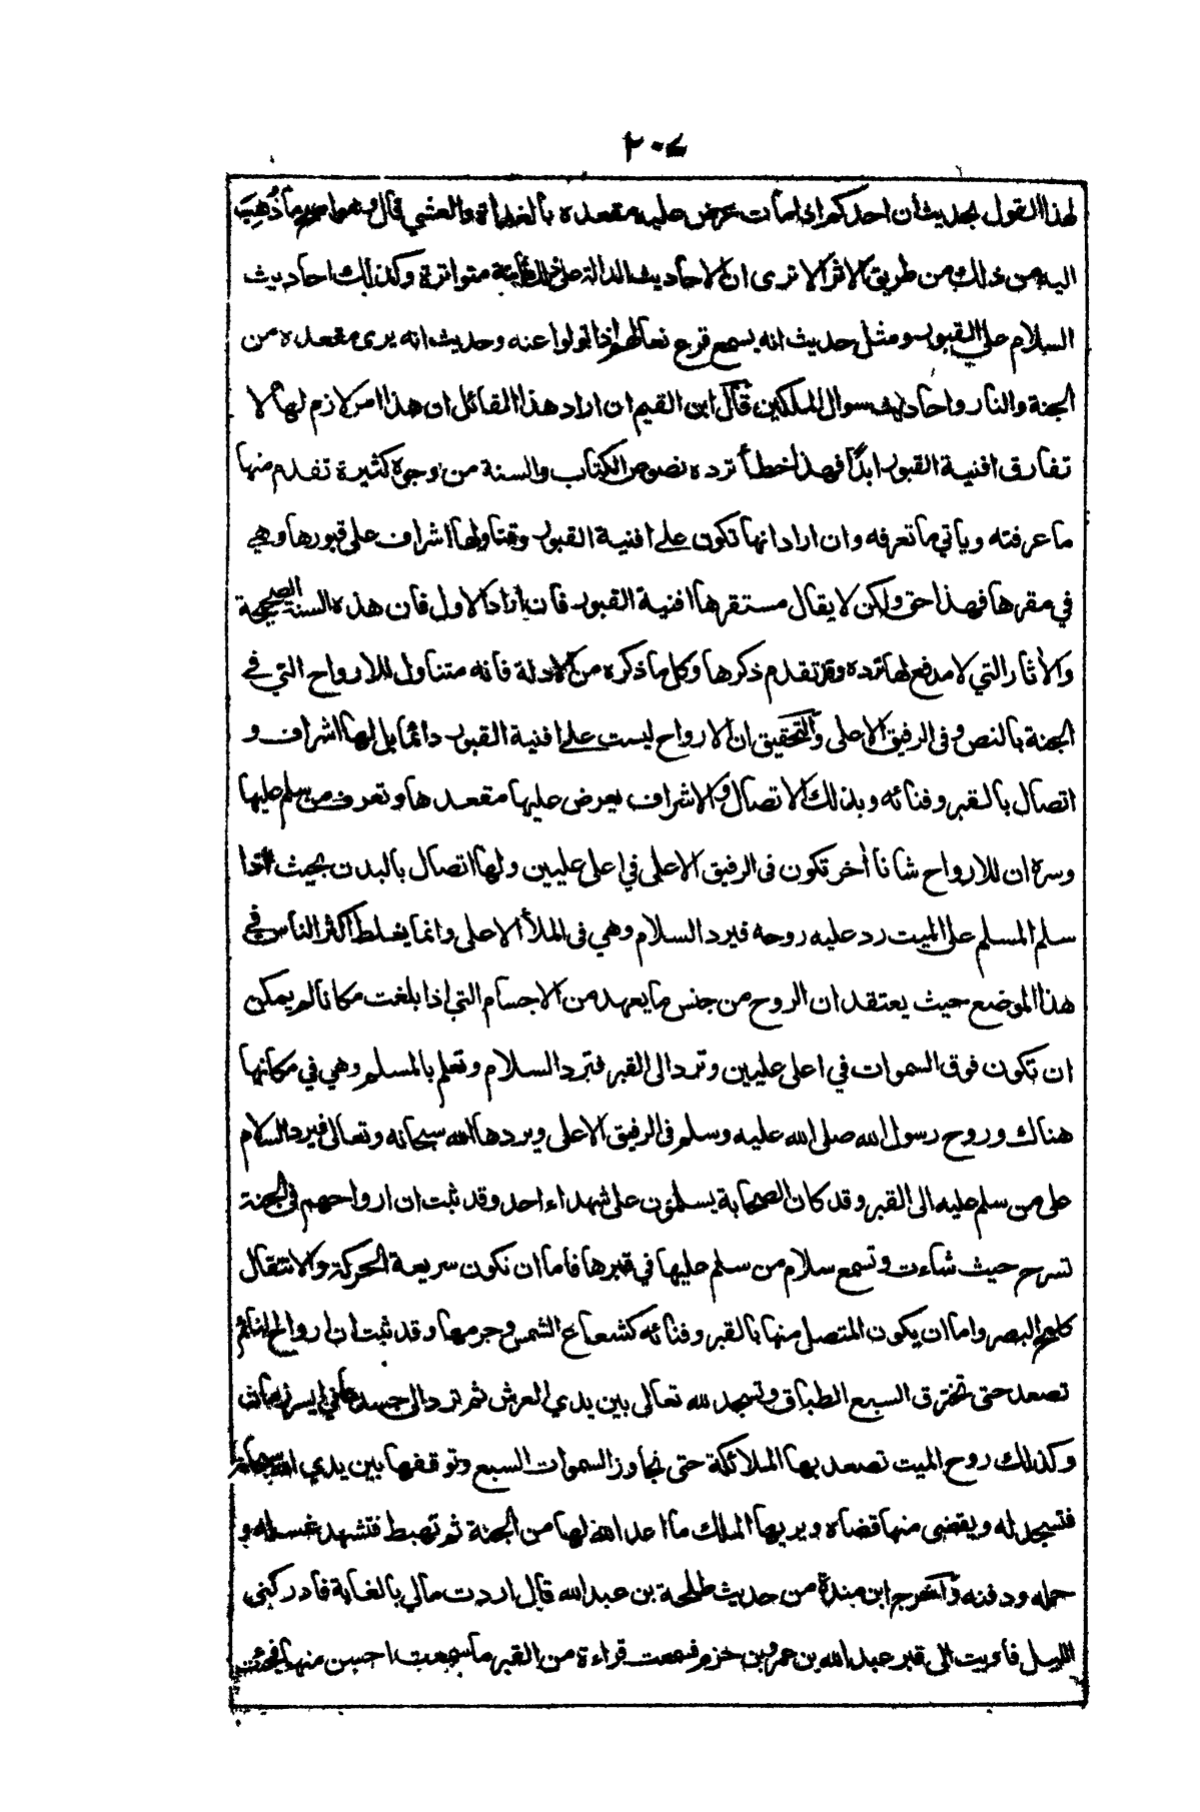 ٢٠٧
لهذا القول بحديث ان احدكم اذا مات عرض عليه مقعده بالغداة والعشي قال وهو اصح ما ذُهِبَ
اليه من ذلك من طريق الاثر الا ترى ان الاحاديث الدالة على ذلك ثابتة متواترة وكذلك احاديث
السلام على القبور ومثل حديث انه يسمع قرع نعالهم اذا تولوا عنه وحديث انه يرى مقعده من
الجنة والنار واحاديث سوال الملكين قال ابن القيم ان اراد هذا القائل ان هذا امر لازم لها لا
تفارق افنية القبور ابدًا فهذا خطأ ترده نصوص الكتاب والسنة من وجوه كثيرة تقدم منها
ما عرفته وياتي ما تعرفه وان اراد انها تكون على افنية القبور وقتا ولها اشراف على قبورها وهي
في مقرها فهذا حق ولكن لا يقال مستقرها افنية القبور فان اراد الاول فان هذه السنة الصحيحة
والاثار التي لا مدفع لها ترده وقد تقدم ذكرها وكل ما ذكره من الادلة فانه متناول للارواح التي في
الجنة بالنص وفى الرفيق الاعلى والتحقيق ان الارواح ليست على افنية القبور دائما بل لها اشراف و
اتصال بالقبر وفنائه وبذلك الاتصال والاشراف يعرض عليها مقعدها وتعرف من سلم عليها
وسره ان للارواح شانا أخر تكون فى الرفيق الاعلى في اعلى عليين ولها اتصال بالبدن بحيث اذا
سلم المسلم على الميت رد عليه روحه فيرد السلام وهي فى الملأ الاعلى وانما يغلط اكثر الناس في
هذا الموضع حيث يعتقد ان الروح من جنس ما يعهد من الاجسام التي اذا بلغت مكانا لم يمكن
ان تكون فوق السموات في اعلى عليين وترد الى القبر فترد السلام وتعلم بالمسلم وهي في مكانها
هناك وروح رسول الله صلى الله عليه وسلم فى الرفيق الاعلى ويردها الله سبحانه وتعالى فيرد السلام
على من سلم عليه الى القبر وقد كان الصحابة يسلمون على شهداء احد وقد ثبت ان ارواحهم فى الجنة
تسرح حيث شاءت وتسمع سلام من سلم عليها في قبرها فاما ان تكون سريعة الحركة والانتقال
كلمح البصر واما ان يكون المتصل منها بالقبر وفنائه كشعاع الشمس وجرمها وقد ثبت ان ارواح النائم
تصعد حتى تخترق السبع الطباق وتسجد لله تعالى بين يدي العرش ثم ترد الى جسده في ايسر زمان
وكذلك روح الميت تصعد بها الملائكة حتى تجاوز السموات السبع وتوقفها بين يدي الله سبحانه
فتسجد له ويقضى منها قضاه ويريها الملك ما اعد الله لها من الجنة ثم تهبط فتشهد غسله و
حمله ودفنه واخرج ابن مندة من حديث طلحة بن عبد الله قال اردت مالي بالغابة فادركنى
الليل فاويت الى قبر عبد الله بن عمرو بن حزم فسمعت قراءة من القبر ما سمعت احسن منها فجئت